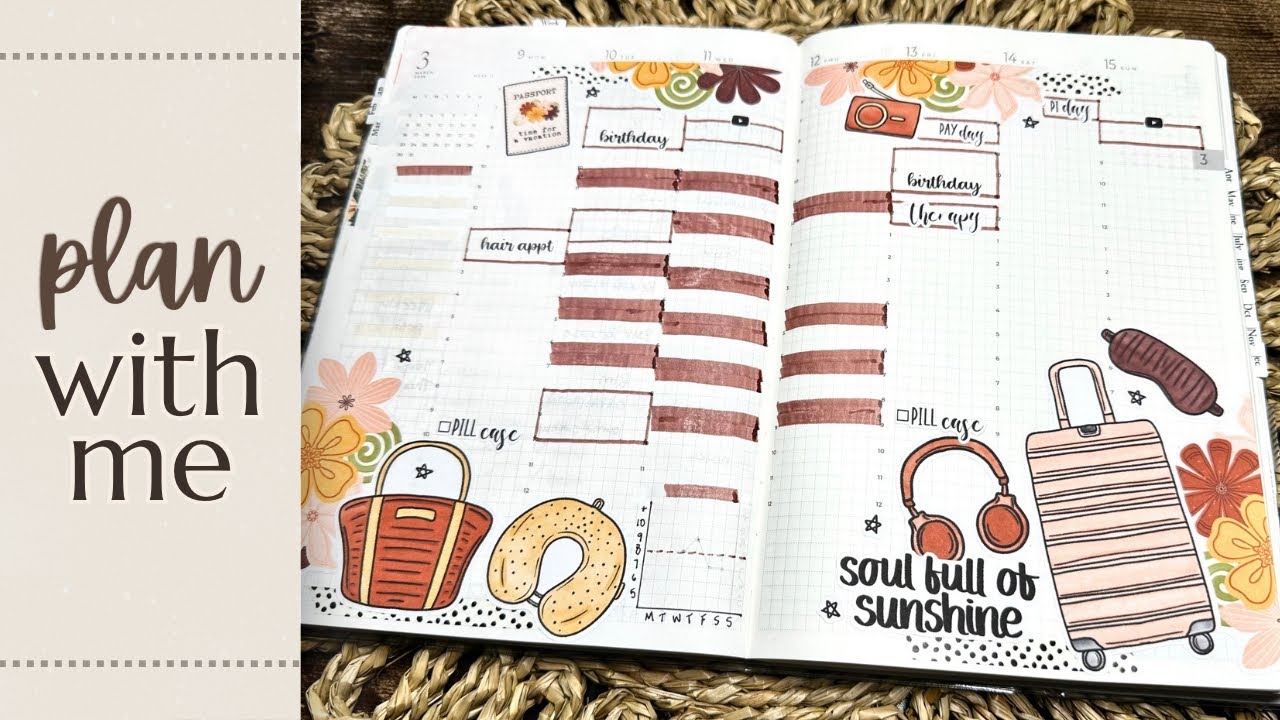 plan
with
me
Week
3
MARCH
9 MON
10 TUE
11 WED
12 THU
13 FRI
14 SAT
15 SUN
PASSPORT
time for
a vacation
birthday
PAY day
PI day
birthday
therapy
hair appt
3
Mar
Apr
May
July
Sep
Oct
Nov
PILL case
PILL case
+
10
9
8
7
6
5
M T W T F S S
soul full of
sunshine